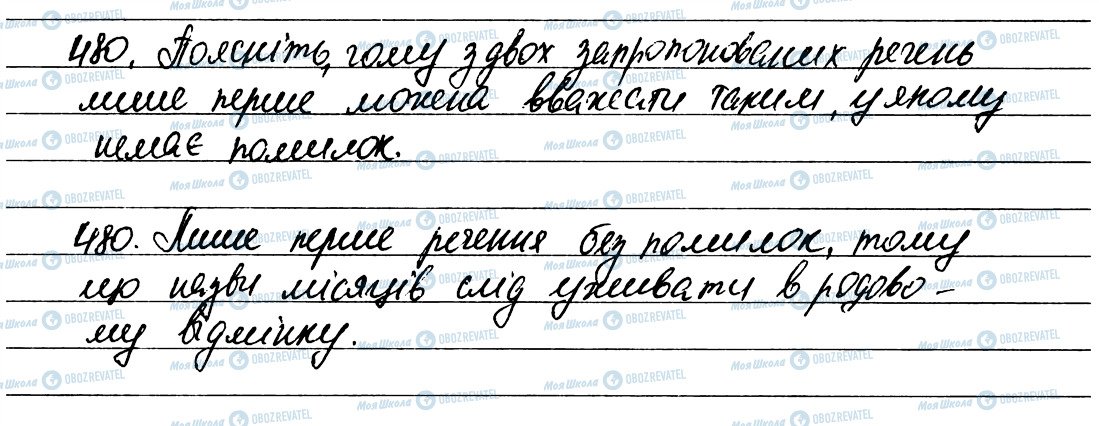 480. Поясніть, чому з двох запропонованих речень
лише перше можна вважати таким, у якому
немає помилок.
480. Лише перше речення без помилок, тому
що назви місяців слід уживати в родово-
му відмінку.